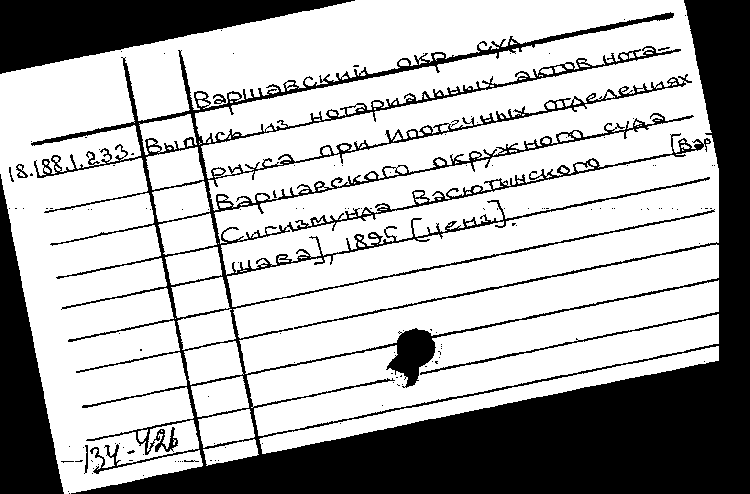 Варшавский окр. суд.
18.188.1.233. Выпись из нотариальных актов нота-
риуса при Ипотечных отделениях
Варшавского окружного суда
Сигизмунда Васютынского [Вар
шава], 1895 [ценз].
134-426